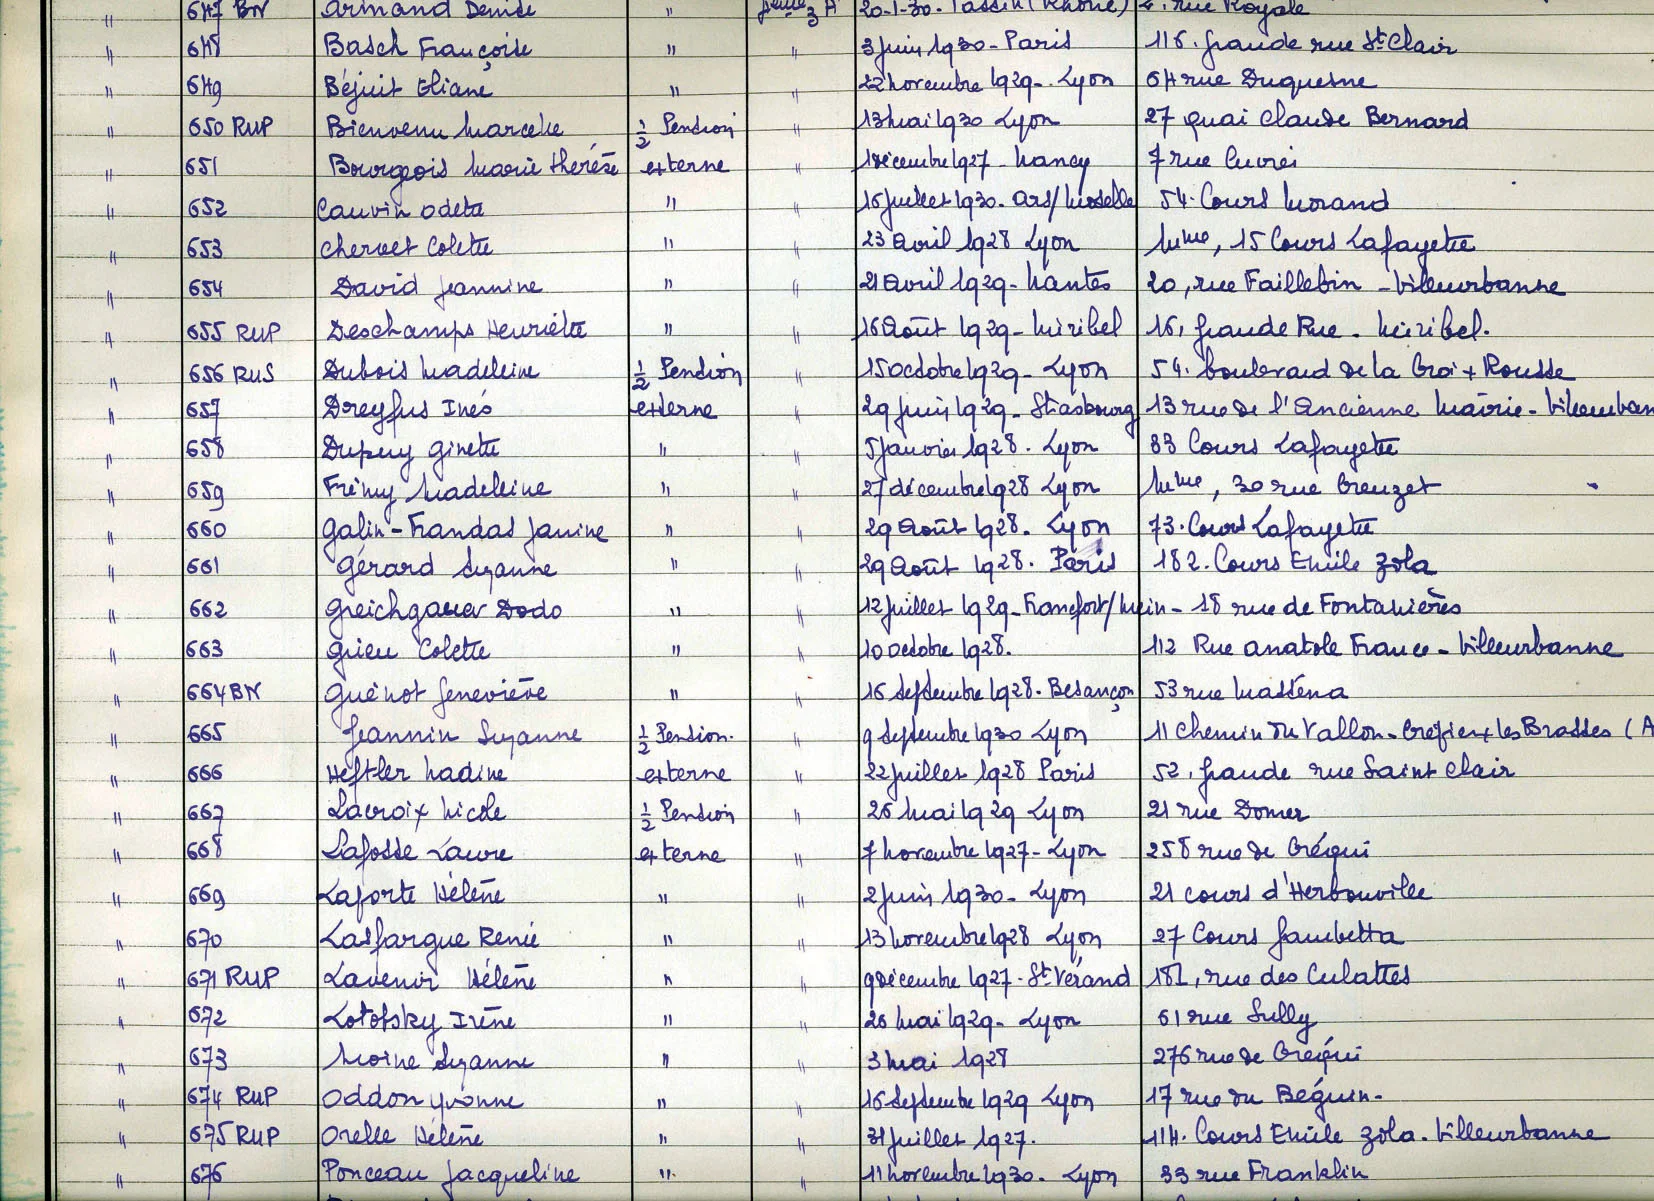 " 647 BN Armand Denise " 3 A 20-1-30. Tassin (Rhône) 2, rue Royale
" 648 Basch Françoise " " 3 juin 1930 - Paris 116. grande rue St Clair
" 649 Béjuit Eliane " " 22 novembre 1929 - Lyon 64 rue Duquesne
" 650 RUP Bienvenu Marcelle 1/2 Pension " 13 mai 1930 Lyon 27 quai Claude Bernard
" 651 Bourgeois Marie Thérèse externe " 1 décembre 1927 - Nancy 7 rue Cuvier
" 652 Cauvin Odette " " 16 juillet 1930. Ars/Moselle 54. Cours Morand
" 653 Chervet Colette " " 23 Avril 1928 Lyon Mme, 15 Cours Lafayette
" 654 David Jeannine " " 21 Avril 1929 - Nantes 20, rue Faillebin - Villeurbanne
" 655 RUP Deschamps Henriette " " 16 Août 1929 - Miribel 16, grande Rue. Miribel.
" 656 RUS Dubois Madeleine 1/2 Pension " 15 octobre 1929 - Lyon 54. boulevard de la Croix Rousse
" 657 Dreyfus Inès externe " 29 juin 1929 - Strasbourg 13 rue de l'Ancienne Mairie - Villeurban
" 658 Dupuy Ginette " " 5 janvier 1928. Lyon 33 Cours Lafayette
" 659 Frémy Madeleine " " 27 décembre 1928 Lyon Mme, 30 rue Creuzet
" 660 Galin-Frandas Janine " " 29 Août 1928. Lyon 73. Cours Lafayette
" 661 Gérard Suzanne " " 29 Août 1928. Paris 182. Cours Emile Zola
" 662 Greichgauer Dodo " " 12 juillet 1929 - Francfort/Mein - 18 rue de Fontanières
" 663 Grieu Colette " " 10 octobre 1928. 112 Rue Anatole France - Villeurbanne
" 664 BN Guénot Geneviève " " 16 septembre 1928. Besançon 53 rue Masséna
" 665 Jeannin Suzanne 1/2 Pension. " 9 septembre 1930 Lyon 11 chemin du Vallon - Crépieux les Brosses (A
" 666 Heftler Nadine externe " 22 juillet 1928 Paris 52, grande rue Saint Clair
" 667 Lacroix Nicole 1/2 Pension " 26 mai 1929 Lyon 21 rue Domer
" 668 Lafosse Laure externe " 7 novembre 1927 - Lyon 258 rue de Créqui
" 669 Laforte Hélène " " 2 juin 1930 - Lyon 21 cours d'Herbouville
" 670 Lasfargue Renée " " 13 novembre 1928 Lyon 27 Cours Gambetta
" 671 RUP Lavenir Hélène " " 9 décembre 1927. St Vérand 181, rue des Culattes
" 672 Lotofsky Irène " " 26 Mai 1929 - Lyon 61 rue Sully
" 673 Moine Suzanne " " 3 mai 1928 276 rue de Créqui
" 674 RUP Oddon Yvonne " " 16 septembre 1929 Lyon 17 rue du Béguin -
" 675 RUP Orelle Hélène " " 31 juillet 1927. 114. Cours Emile Zola. Villeurbanne
" 676 Ponceau Jacqueline " " 11 novembre 1930. Lyon 33 rue Franklin